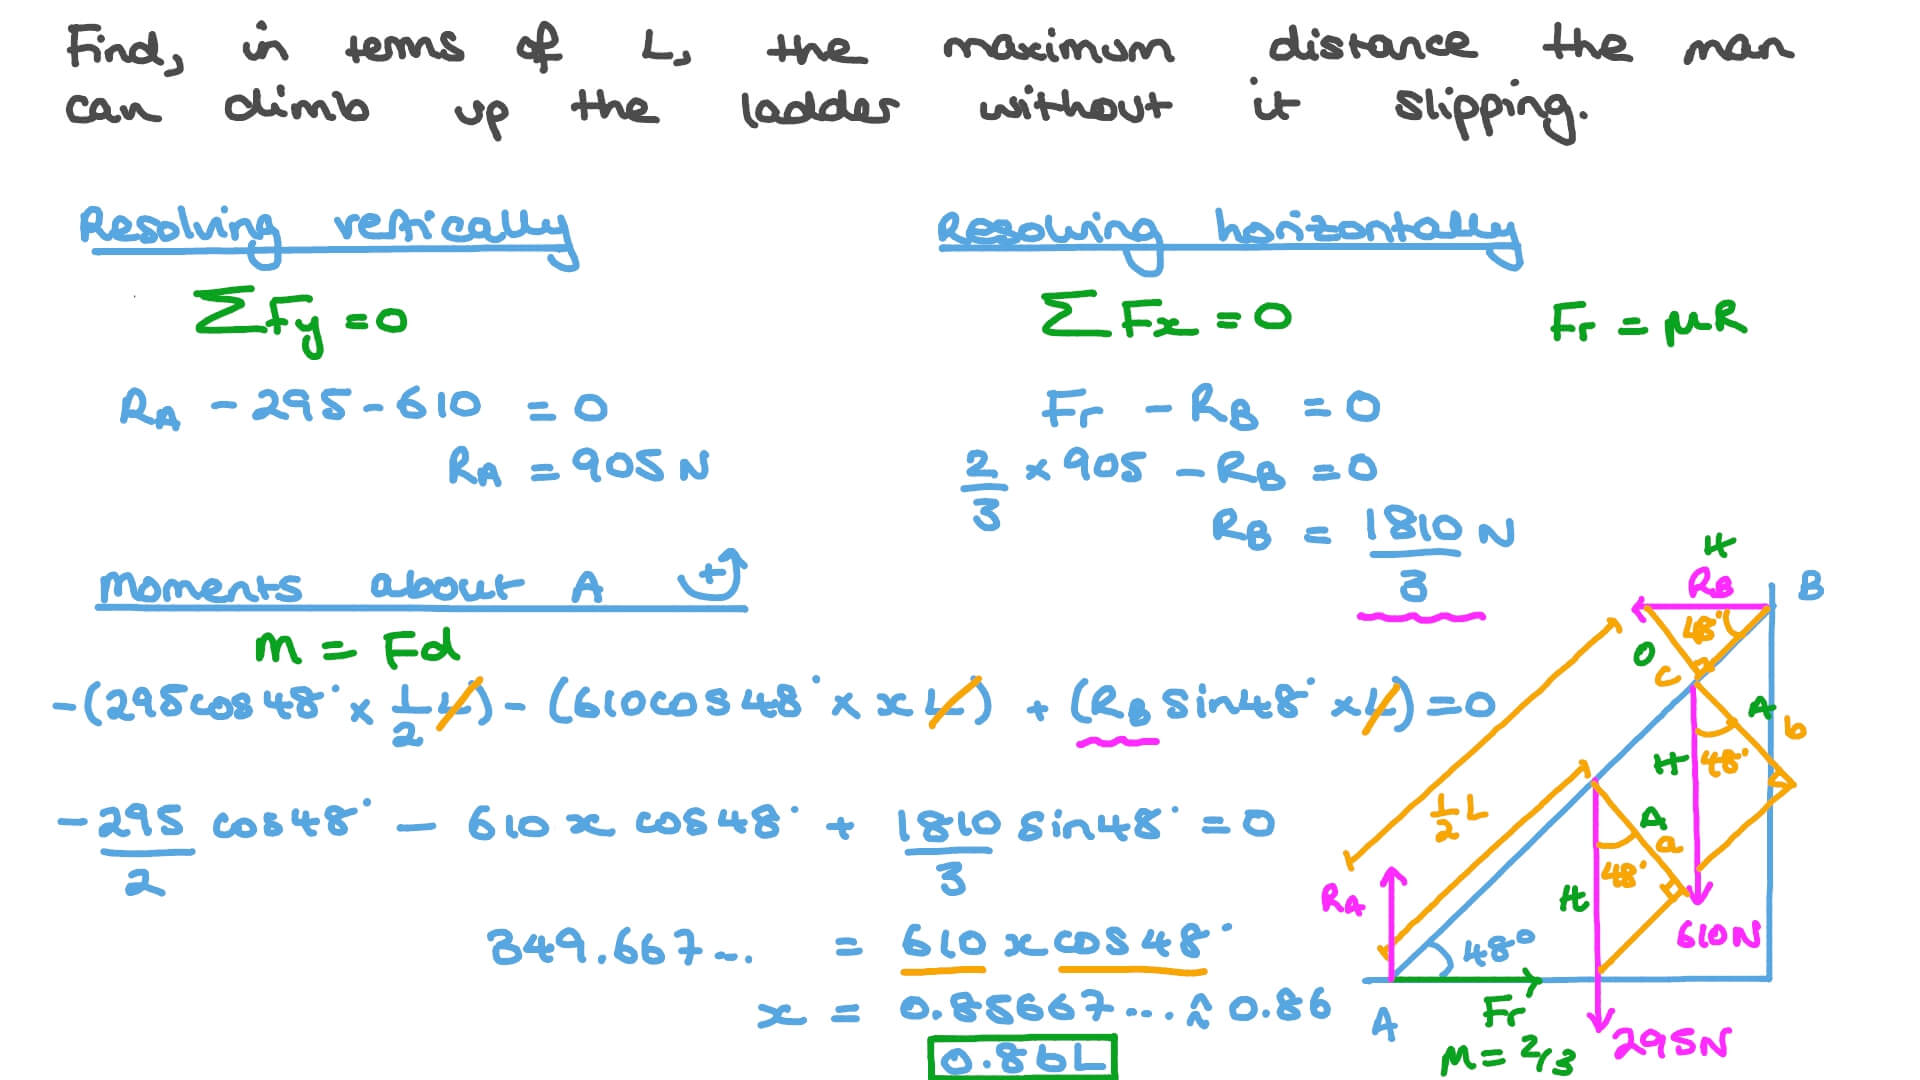 Find, in terms of L, the maximum distance the man
can climb up the ladder without it slipping.
Resolving vertically
ΣFy = 0
RA - 295 - 610 = 0
RA = 905 N
Resolving horizontally
ΣFx = 0
Fr = μR
Fr - RB = 0
2/3 × 905 - RB = 0
RB = 1810/3 N
Moments about A +
M = Fd
-(295cos48° × 1/2 L) - (610cos48° × xL) + (RB sin48° × L) = 0
-295/2 cos48° - 610x cos48° + 1810/3 sin48° = 0
349.667... = 610 x cos48°
x = 0.85667... ≈ 0.86
0.86L
H
RB
B
48°
O
c
A
b
H
48°
1/2 L
A
a
48°
RA
H
610N
48°
A
Fr
295N
M = 2/3